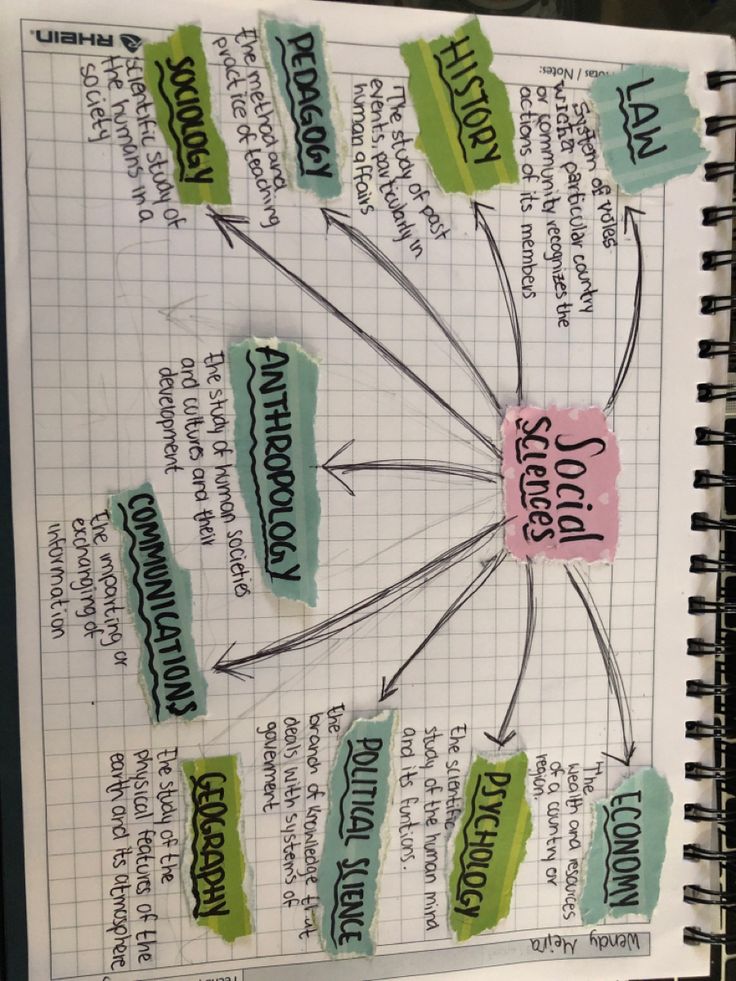 Notas / Notes:
Wendy Mejra
Social
SCIENCES
LAW
System of rules
wicher particular country
or community recognizes the
actions of its members
HISTORY
The study of past
events, particularly in
human affairs
PEDAGOGY
the method and
practice of teaching
SOCIOLOGY
scientific study of
the humans in a
society
ANTHROPOLOGY
the study of human societies
and cultures and their
development
COMMUNICATIONS
the imparting or
exchanging of
information
GEOGRAPHY
the study of the
physical features of the
earth and its atmosphere
POLITICAL SCIENCE
the
branch of knowledge that
deals with systems of
goverment
PSYCHOLOGY
the scientific
study of the human mind
and its funtions.
ECONOMY
The
wealth and resources
of a country or
region.
RHEIN